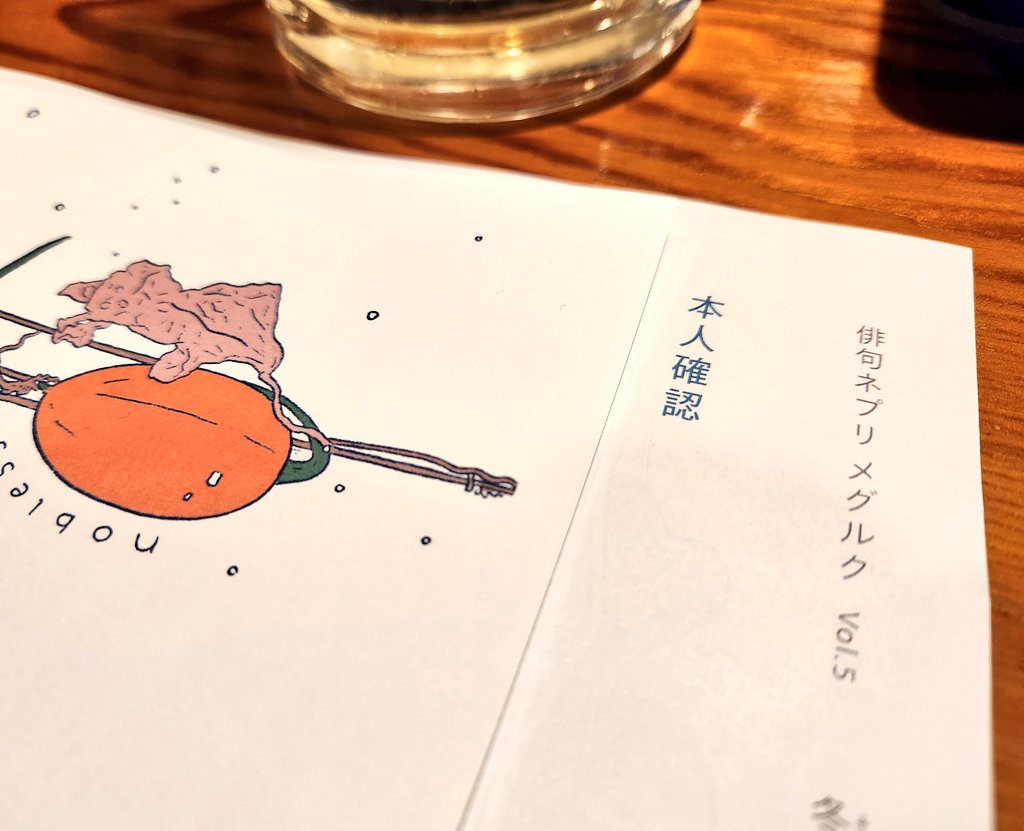 俳句ネプリ メグルク Vol.5
本人確認
nobless